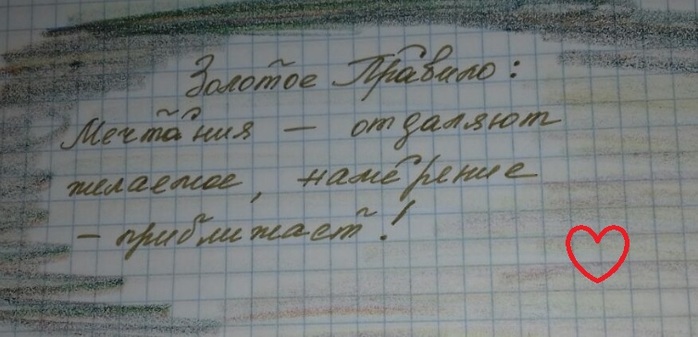 Золотое Правило:
Мечтания — отдаляют
желаемое, намерение
- приближает!